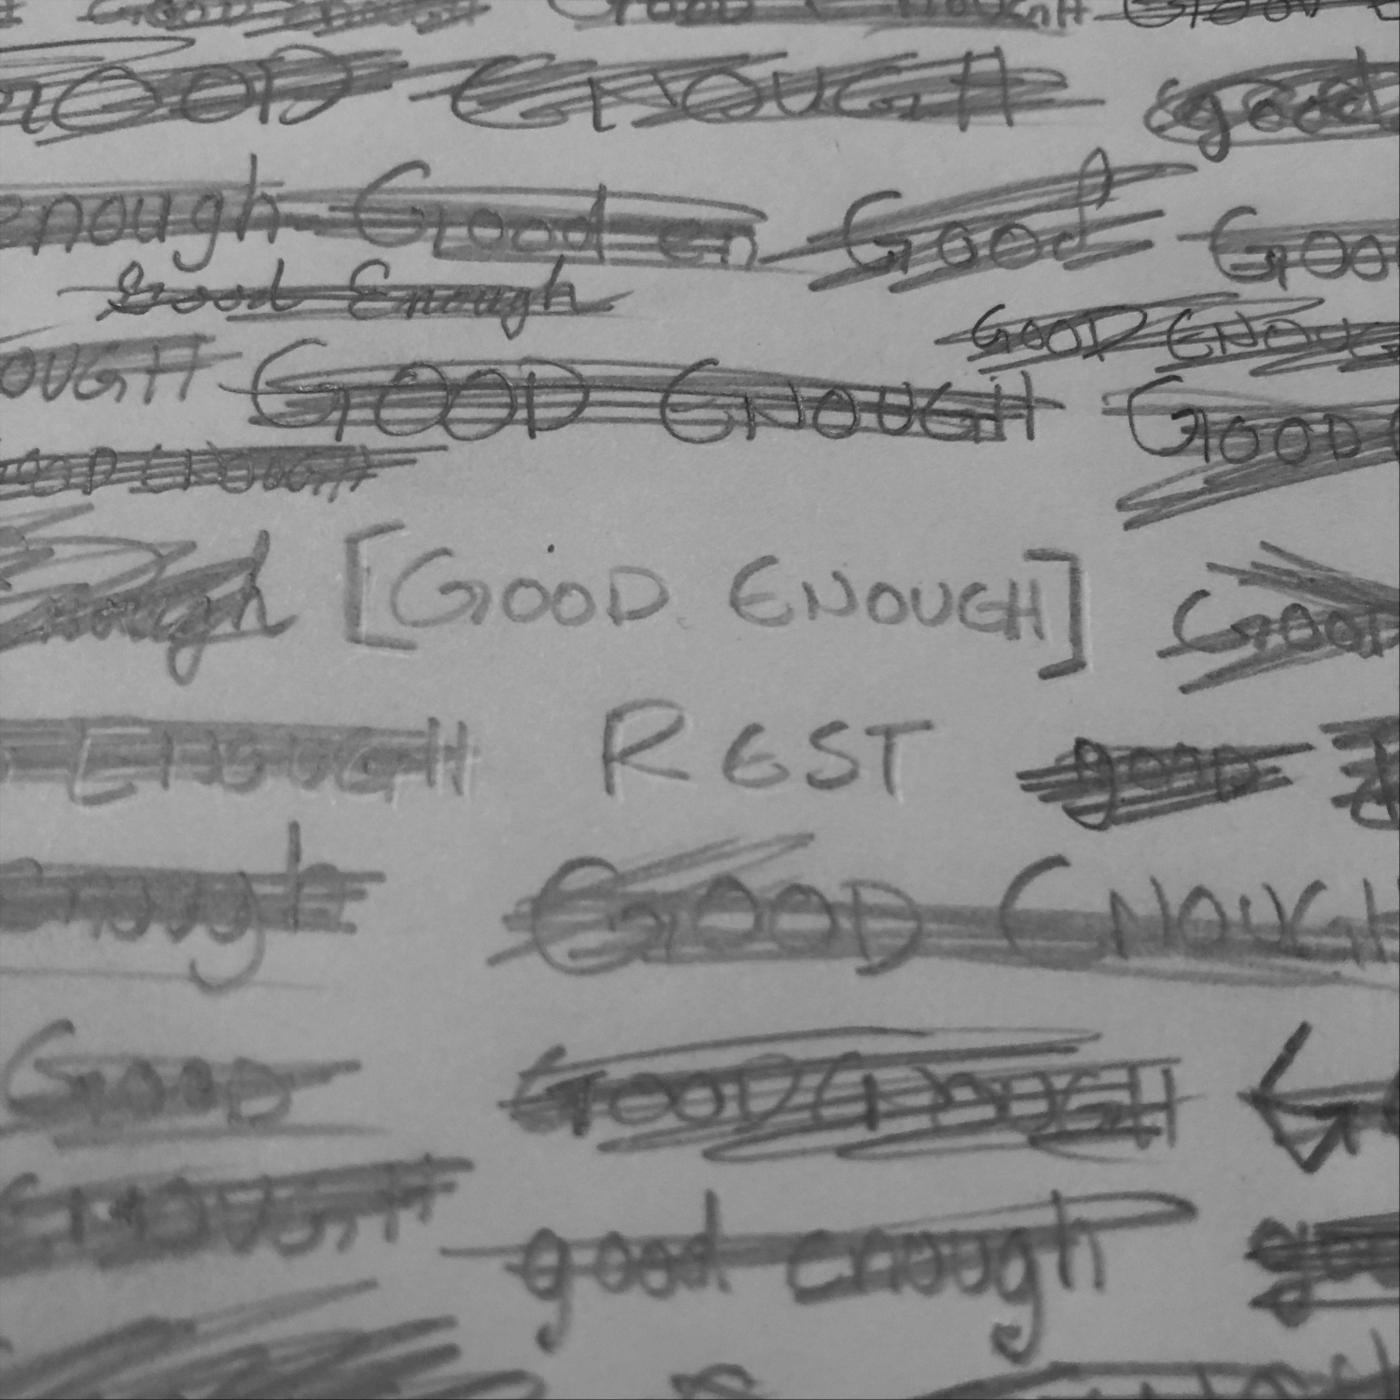 GOOD ENOUGH GOOD
GOOD ENOUGH good
enough Good en Good Goo
Good Enough
GOOD ENOUG
OUGH GOOD ENOUGH GOOD
OOD ENOUGH
enough [GOOD ENOUGH] GOOD
ENOUGH REST gooD
enough GOOD ENOUGH
GOOD GOOD ENOUGH G
ENOUGH good enough go